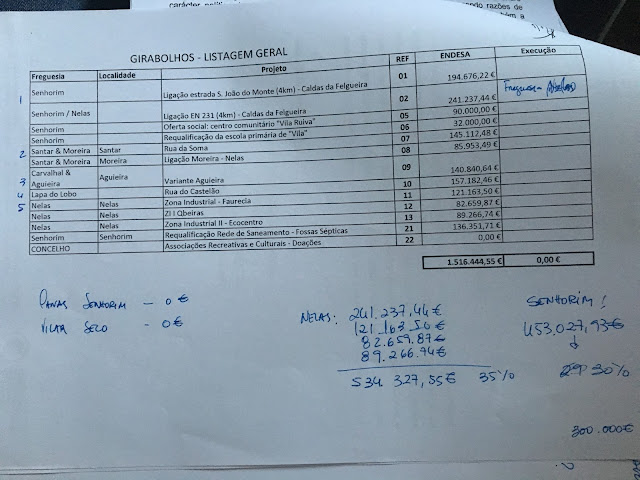 GIRABOLHOS - LISTAGEM GERAL
Freguesia Localidade Projeto REF ENDESA Execução
Senhorim Ligação estrada S. João do Monte (4km) - Caldas da Felgueira 01 194.676,22 €
1
Senhorim / Nelas Ligação EN 231 (4km) - Caldas da Felgueira 02 241.237,44 €
Senhorim Oferta social: centro comunitário "Vila Ruiva" 05 90.000,00 €
Senhorim Requalificação da escola primária de "Vila" 06 32.000,00 €
2 Santar & Moreira Santar Rua da Soma 07 145.112,48 €
Santar & Moreira Moreira Ligação Moreira - Nelas 08 85.953,49 €
3 Carvalhal & Aguieira Aguieira Variante Aguieira 09 140.840,64 €
4 Lapa do Lobo Rua do Castelão 10 157.182,46 €
5 Nelas Nelas Zona Industrial - Faurecia 11 121.163,50 €
Nelas Nelas ZI I Qbeiras 12 82.659,87 €
Nelas Nelas Zona Industrial II - Ecocentro 13 89.266,74 €
Senhorim Senhorim Requalificação Rede de Saneamento - Fossas Sépticas 21 136.351,71 €
CONCELHO Associações Recreativas e Culturais - Doações 22 0,00 €
1.516.444,55 € 0,00 €
SENHORIM - 0€
VILAR SECO - 0€
NELAS: 241.237,44€
121.163,50€
82.659,87€
89.266.74€
534.327,55€ 35%
SENHORIM!
453.027,93€
29 30%
300.000€